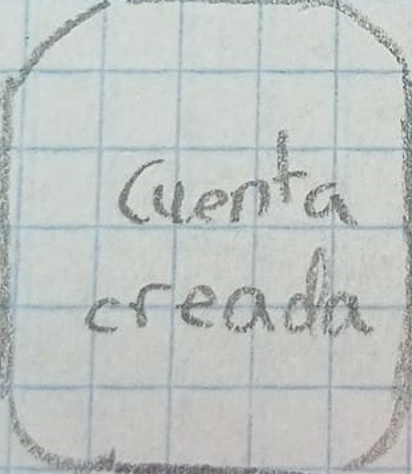 Cuenta
creada